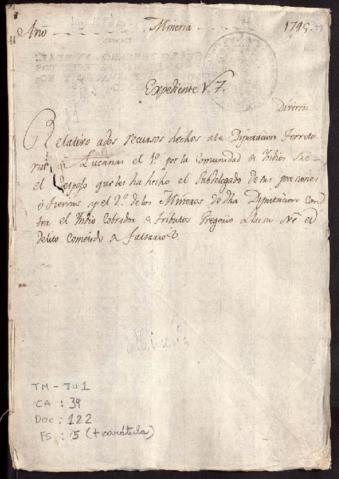 Año Mineria 1795
Expediente N. 7.
Diversos
Relativo a dos recursos hechos a la Diputacion Territo
rial de Lucanas el 1º. por la Comunidad de Indios
el despojo que les ha hecho el Subdelegado de sus posesiones
ó tierras y el 2º. de los Mineros de dha Diputacion con
tra el Indio Cobrador de tributos Gregorio el
delito cometido de falsario
TM - JU 1
CA : 39
DOC : 122
FS : 5 (+ carátula)